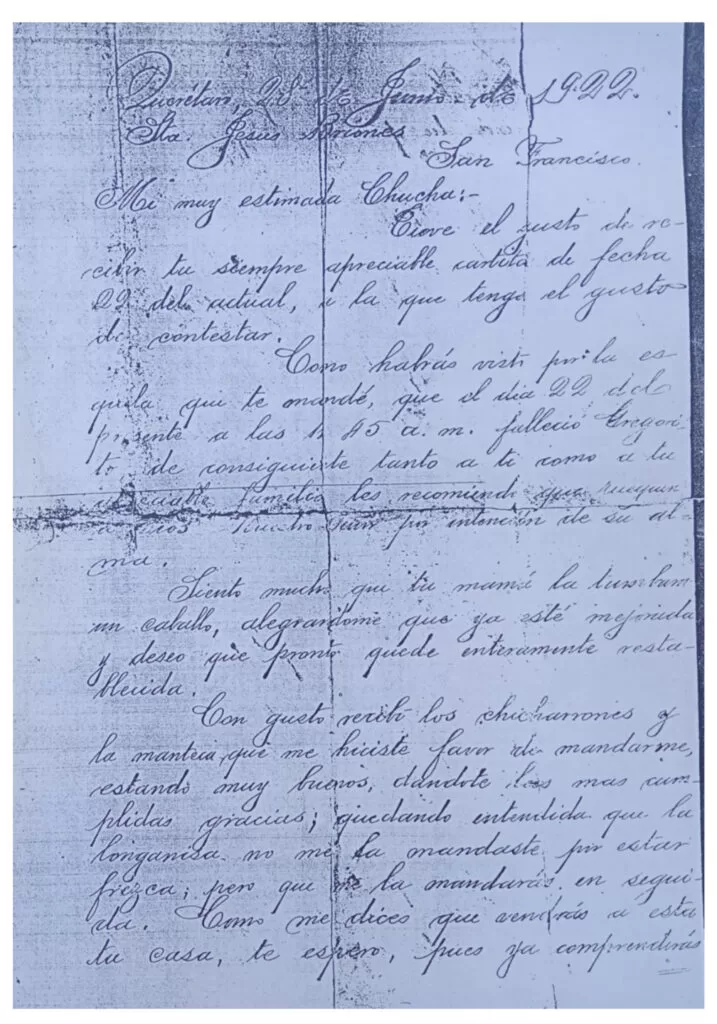 Querétaro, 28 de Junio de 1922.
Sta. Jesus Briones
San Francisco.
Mi muy estimada Chucha:-
Tuve el gusto de re-
cibir tu siempre apreciable cartita de fecha
22 del actual, a la que tengo el gusto
de contestar.
Como habrás visto por la es-
quela que te mandé, que el dia 22 del
presente a las 45 a. m. falleció Gregori-
to de consiguiente tanto a ti como a tu
apreciable familia les recomiendo que rueguen
a Dios Nuestro Señor por intención de su al-
ma.
Siento mucho que tu mamá la tumbara
un caballo, alegrandome que ya esté mejorada
y deseo que pronto quede enteramente resta-
blecida.
Con gusto recibí los chicharrones y
la manteca que me hiciste favor de mandarme,
estando muy buenos, dandote las mas cum-
plidas gracias; quedando entendida que la
longanisa no me la mandaste por estar
frezca; pero que me la mandarás en segui-
da. Como me dices que vendrás a esta
tu casa, te espero, pues ya comprenderás